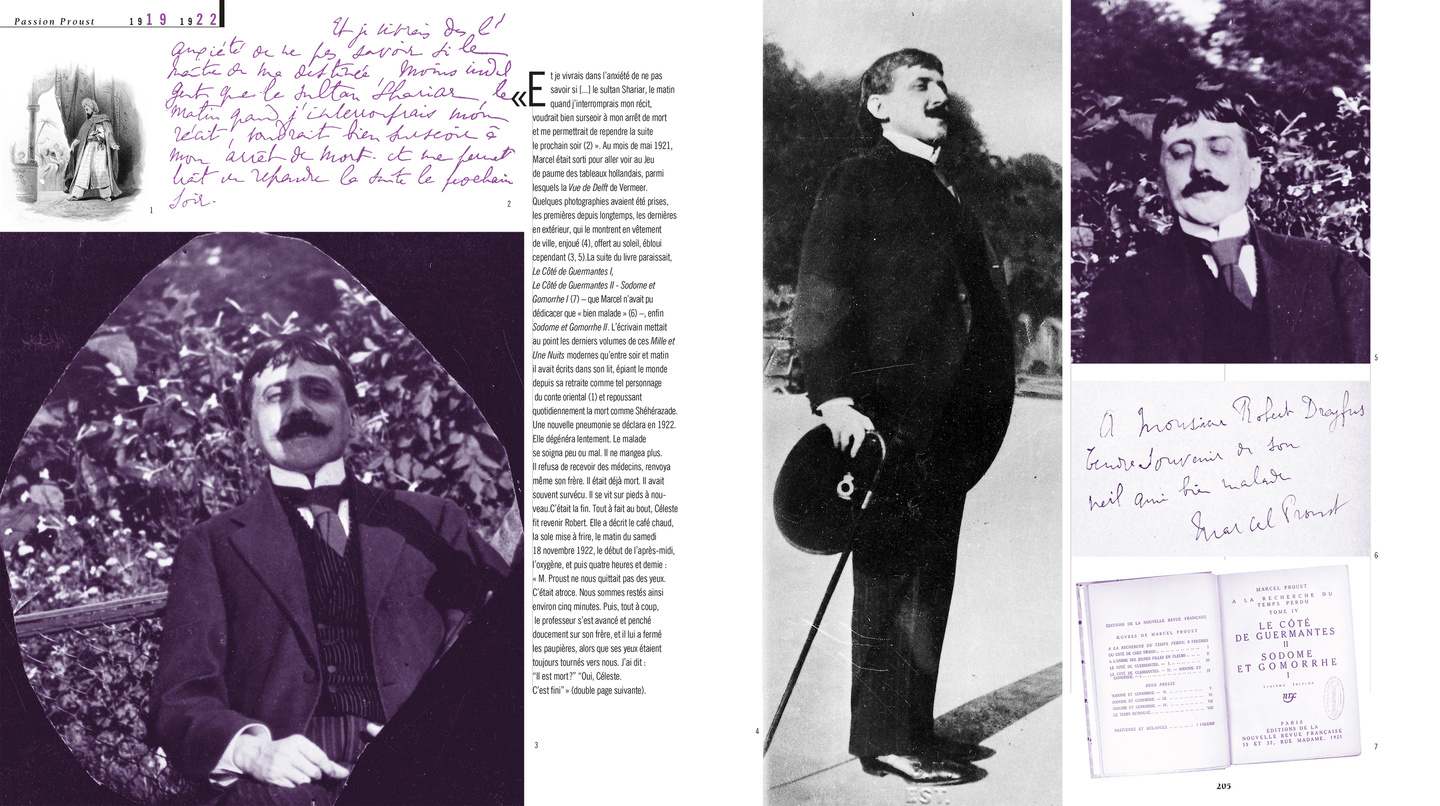 Passion Proust 1919 1922
Et je vivrais dans l'
anxiété de ne pas savoir si le
maître de ma destinée, moins indul
gent que le sultan Shariar, le
matin quand j'interromprais mon
récit, voudrait bien surseoir à
mon arrêt de mort. et me permet
trait de reprendre la suite le prochain
soir.
1
2
«Et je vivrais dans l'anxiété de ne pas
savoir si [...] le sultan Shariar, le matin
quand j'interromprais mon récit,
voudrait bien surseoir à mon arrêt de mort
et me permettrait de rependre la suite
le prochain soir (2) ». Au mois de mai 1921,
Marcel était sorti pour aller voir au Jeu
de paume des tableaux hollandais, parmi
lesquels la Vue de Delft de Vermeer.
Quelques photographies avaient été prises,
les premières depuis longtemps, les dernières
en extérieur, qui le montrent en vêtement
de ville, enjoué (4), offert au soleil, ébloui
cependant (3, 5).La suite du livre paraissait,
Le Côté de Guermantes I,
Le Côté de Guermantes II - Sodome et
Gomorrhe I (7) – que Marcel n'avait pu
dédicacer que « bien malade » (6) –, enfin
Sodome et Gomorrhe II. L'écrivain mettait
au point les derniers volumes de ces Mille et
Une Nuits modernes qu'entre soir et matin
il avait écrits dans son lit, épiant le monde
depuis sa retraite comme tel personnage
du conte oriental (1) et repoussant
quotidiennement la mort comme Shéhérazade.
Une nouvelle pneumonie se déclara en 1922.
Elle dégénéra lentement. Le malade
se soigna peu ou mal. Il ne mangea plus.
Il refusa de recevoir des médecins, renvoya
même son frère. Il était déjà mort. Il avait
souvent survécu. Il se vit sur pieds à nou-
veau.C'était la fin. Tout à fait au bout, Céleste
fit revenir Robert. Elle a décrit le café chaud,
la sole mise à frire, le matin du samedi
18 novembre 1922, le début de l'après-midi,
l'oxygène, et puis quatre heures et demie :
« M. Proust ne nous quittait pas des yeux.
C'était atroce. Nous sommes restés ainsi
environ cinq minutes. Puis, tout à coup,
le professeur s'est avancé et penché
doucement sur son frère, et il lui a fermé
les paupières, alors que ses yeux étaient
toujours tournés vers nous. J'ai dit :
"Il est mort?" "Oui, Céleste.
C'est fini" » (double page suivante).
3
4
5
A Monsieur Robert Dreyfus
Tendre souvenir de son
vieil ami bien malade
Marcel Proust
6
EDITIONS DE LA NOUVELLE REVUE FRANÇAISE
ŒUVRES DE MARCEL PROUST
A LA RECHERCHE DU TEMPS PERDU
DU CÔTÉ DE CHEZ SWANN
A L'OMBRE DES JEUNES FILLES EN FLEURS
LE CÔTÉ DE GUERMANTES. — I.
LE CÔTÉ DE GUERMANTES. — II. — SODOME ET
GOMORRHE. — I
SOUS PRESSE
SODOME ET GOMORRHE. — II.
SODOME ET GOMORRHE. — III.
SODOME ET GOMORRHE. — IV.
LE TEMPS RETROUVÉ.
PASTICHES ET MÉLANGES
MARCEL PROUST
A LA RECHERCHE DU
TEMPS PERDU
TOME IV
LE CÔTÉ
DE GUERMANTES
II
SODOME
ET GOMORRHE
I
nrf
PARIS
ÉDITIONS DE LA
NOUVELLE REVUE FRANÇAISE
35 ET 37, RUE MADAME. 1921
7
205